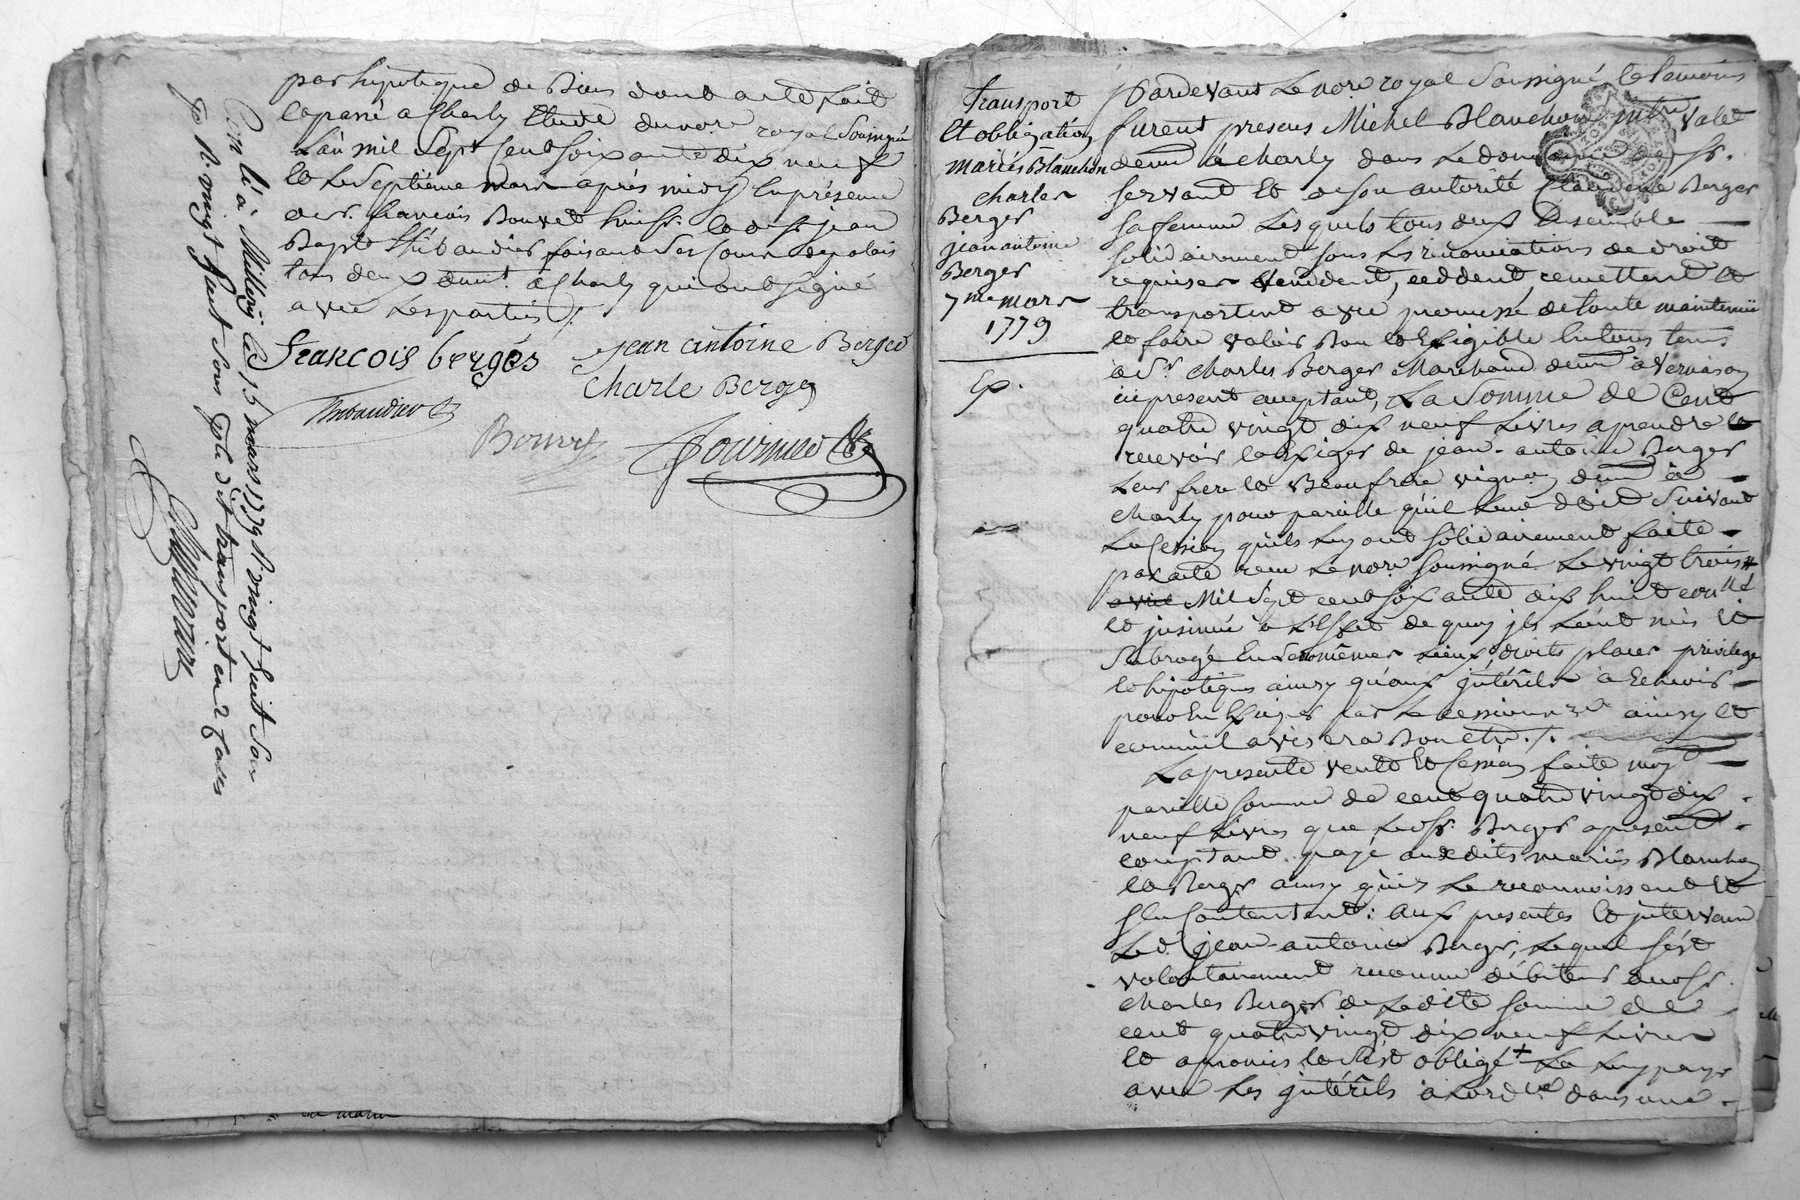 par hipoteque de Biens dont acte fait
et passé a Charly Etude du nore. royal Soussigné
L'an mil Sept Cent Soixante dix neuf
et Le Septième mars après midy En présence
de Sr. francois Bouvet huissr. et de Sr. jean
Bapte Thibaudier faisant Ses Cours de palais
tous deux demt. a Charly qui ont Signé
avec Les parties ./.
francois bergés
jean antoine Berger
Charle Berger
Thibaudier
Bouvet
Fournier
Con lé à Millery le 15 mars 1779 R. vingt huit Sous
Jo R. vingt huit Sous Gple dit transport en 2 Cases
Transport
Et obligation
mariés Blanchon
Charles
Berger
jean antoine
Berger
7me mars
1779
Ex.
Pardevant Le nore royal Soussigné et temoins
furent presens Michel Blanchon mtre valet
demt à Charly dans Le domaine de Sr.
Servant Et de Son autorité Claudine Berger
Sa femme Lesquels tous deux Ensemble
Solidairement Sous Les renonciations de droit
requises Vendent, ceddent, remettent Et
transportent avec promesse de toute maintenüe
et faire valoir Bon et Exigible En tous tems
à Sr. Charles Berger Marchand demt à Vernaison
icy present acceptant, La Somme de Cent
quatre vingt dix neuf Livres a prendre et
recevoir et Exiger de jean-antoine Berger
Leur frere et Beaufrere vigneron demt à
Charly pour pareille qu'il Leur doit Suivant
La Cession qu'ils Luy ont Solidairement faite
par acte recu Le nore. Soussigné Le vingt trois
avril Mil Sept cent Soixante dix huit conllé
et jnsinué a L'Effet de quoy jls L'ont mis Et
Subrogé En Leur mêmes Lieux, droits places privilege
et hipoteques ainsy qu'aux jntérêts à Echeoir
pour En Exiger par Le cessionnre ainsy et
comme il avisera Bon etre ./.
La presente vente Et Cession faite moyt
pareille Somme de cent quatre vingt dix
neuf Livres que Led Sr. Berger a presentt
comptant payé auxdits mariés Blanchon
et Berger ainsy qu'ils Le reconnoissent Et
S'En Contentent: aux presentes Est jntervenu
Led. jean-antoine Berger, Lequel S'est
volontairement reconnu débiteur dud Sr.
Charles Berger de Ladite Somme de
cent quatre vingt dix neuf Livres
Et a promis et S'est obligé + de Luy payer
avec Les jntérêts à L'ordre dans une